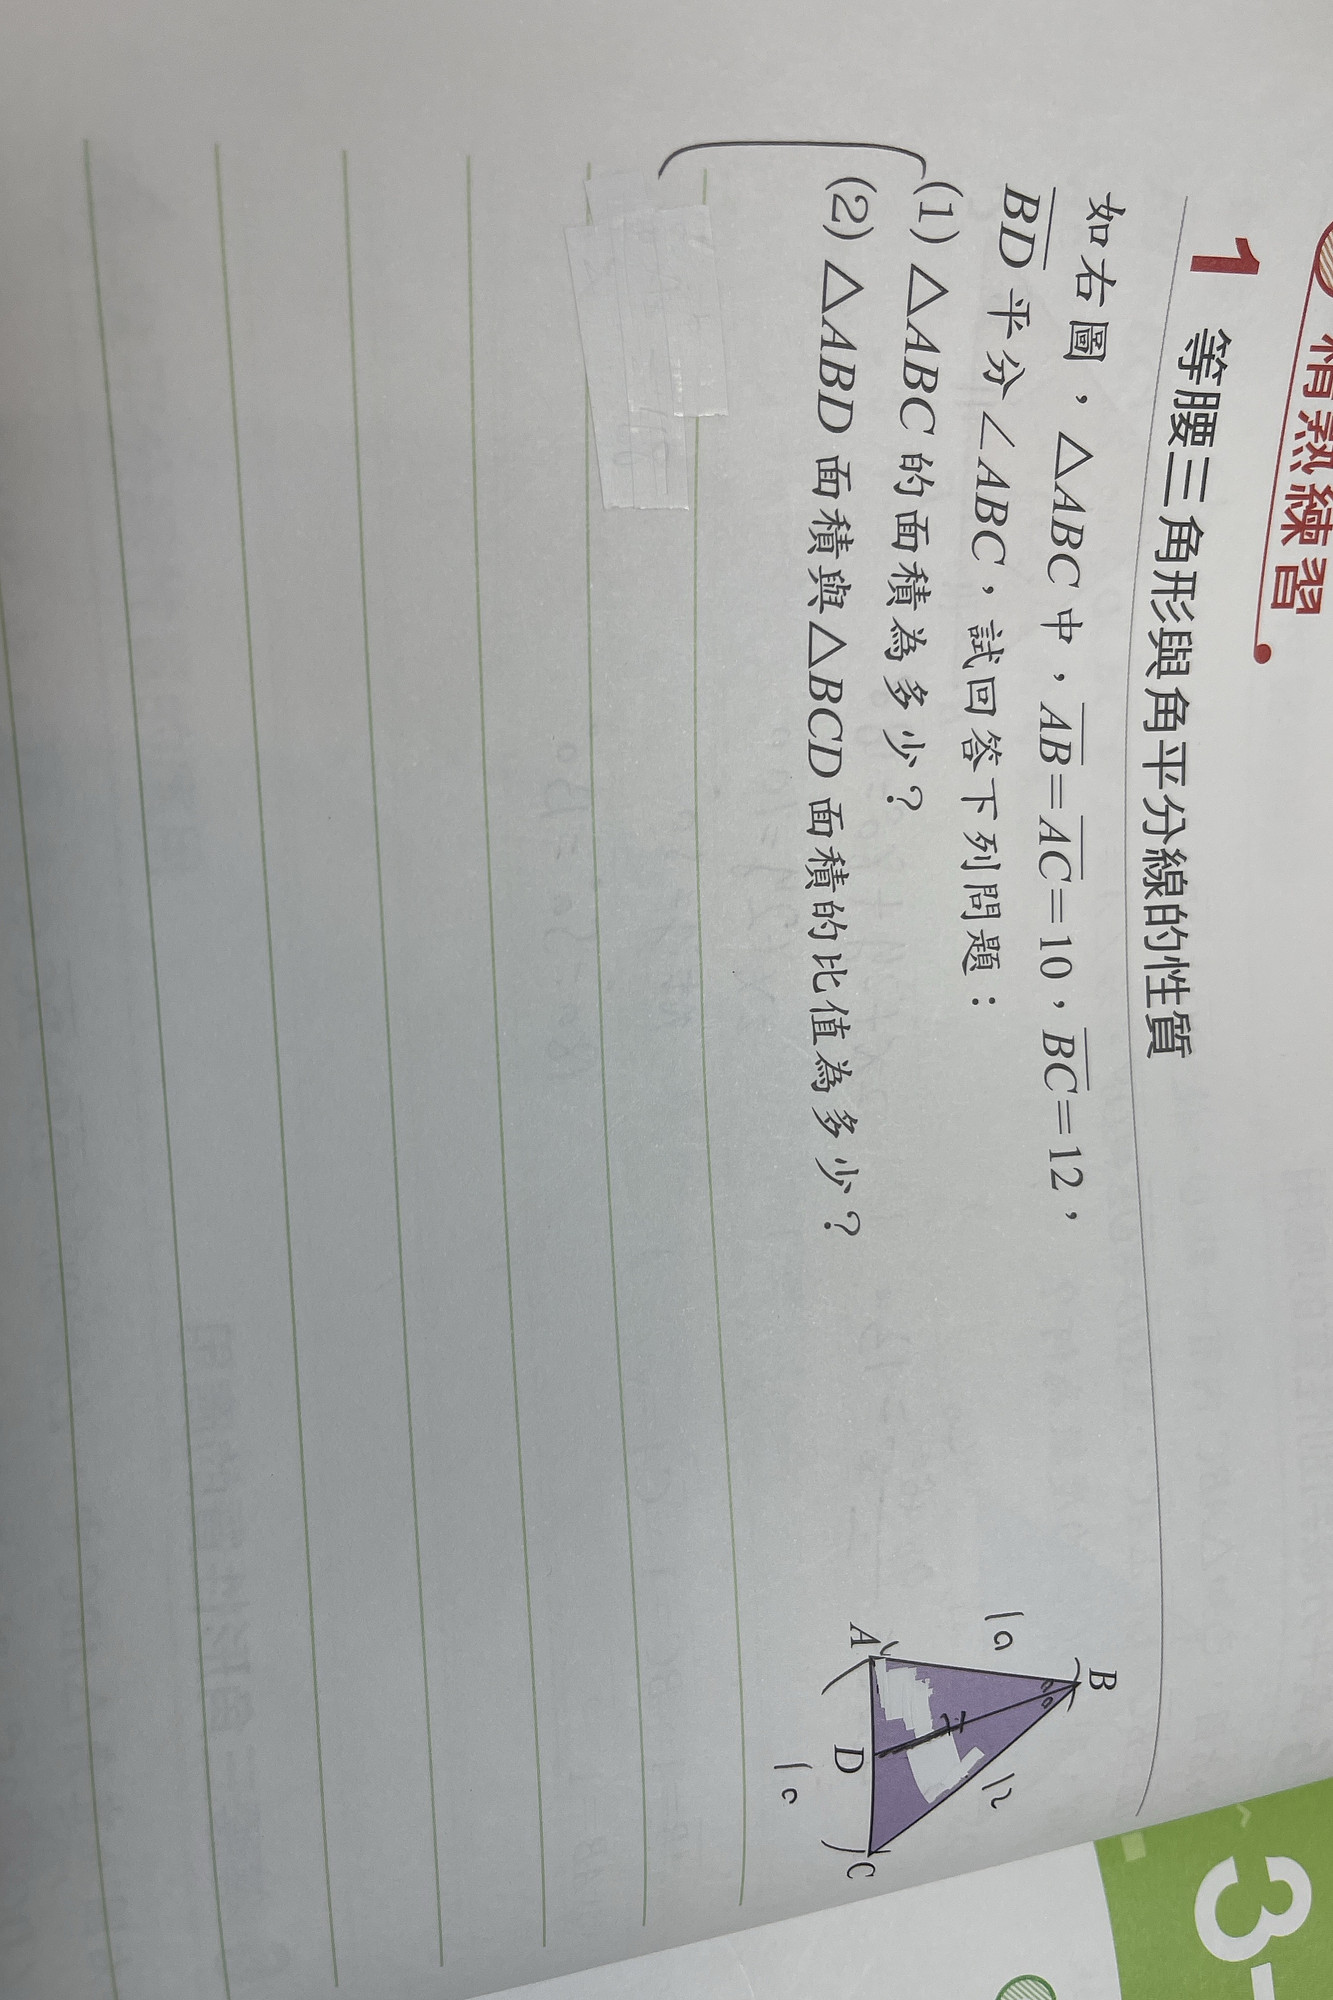 精熟練習
3-
1 等腰三角形與角平分線的性質
如右圖，△ABC中，AB=AC=10，BC=12，
BD平分∠ABC，試回答下列問題：
(1) △ABC的面積為多少？
(2) △ABD面積與△BCD面積的比值為多少？
B
10
12
A
D
C
10